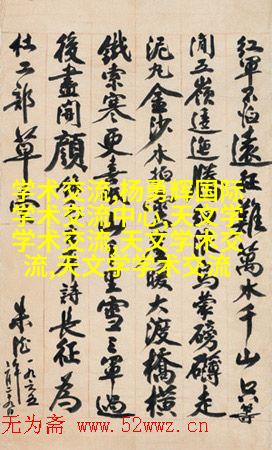 紅軍不怕遠征難萬水千山只等
閒五嶺逶迤騰馬蒙磅礴走
泥丸金沙水拍暖大渡橋橫
鐵索寒更喜里雪三軍過
後盡開顏詩長征為
杜工部草
朱德
一九六五
学术交流,杨勇辉国际
学术交流中心,天文学
学术交流,天文学术交
流,天文学学术交流
无为斋 www.52wwz.cn